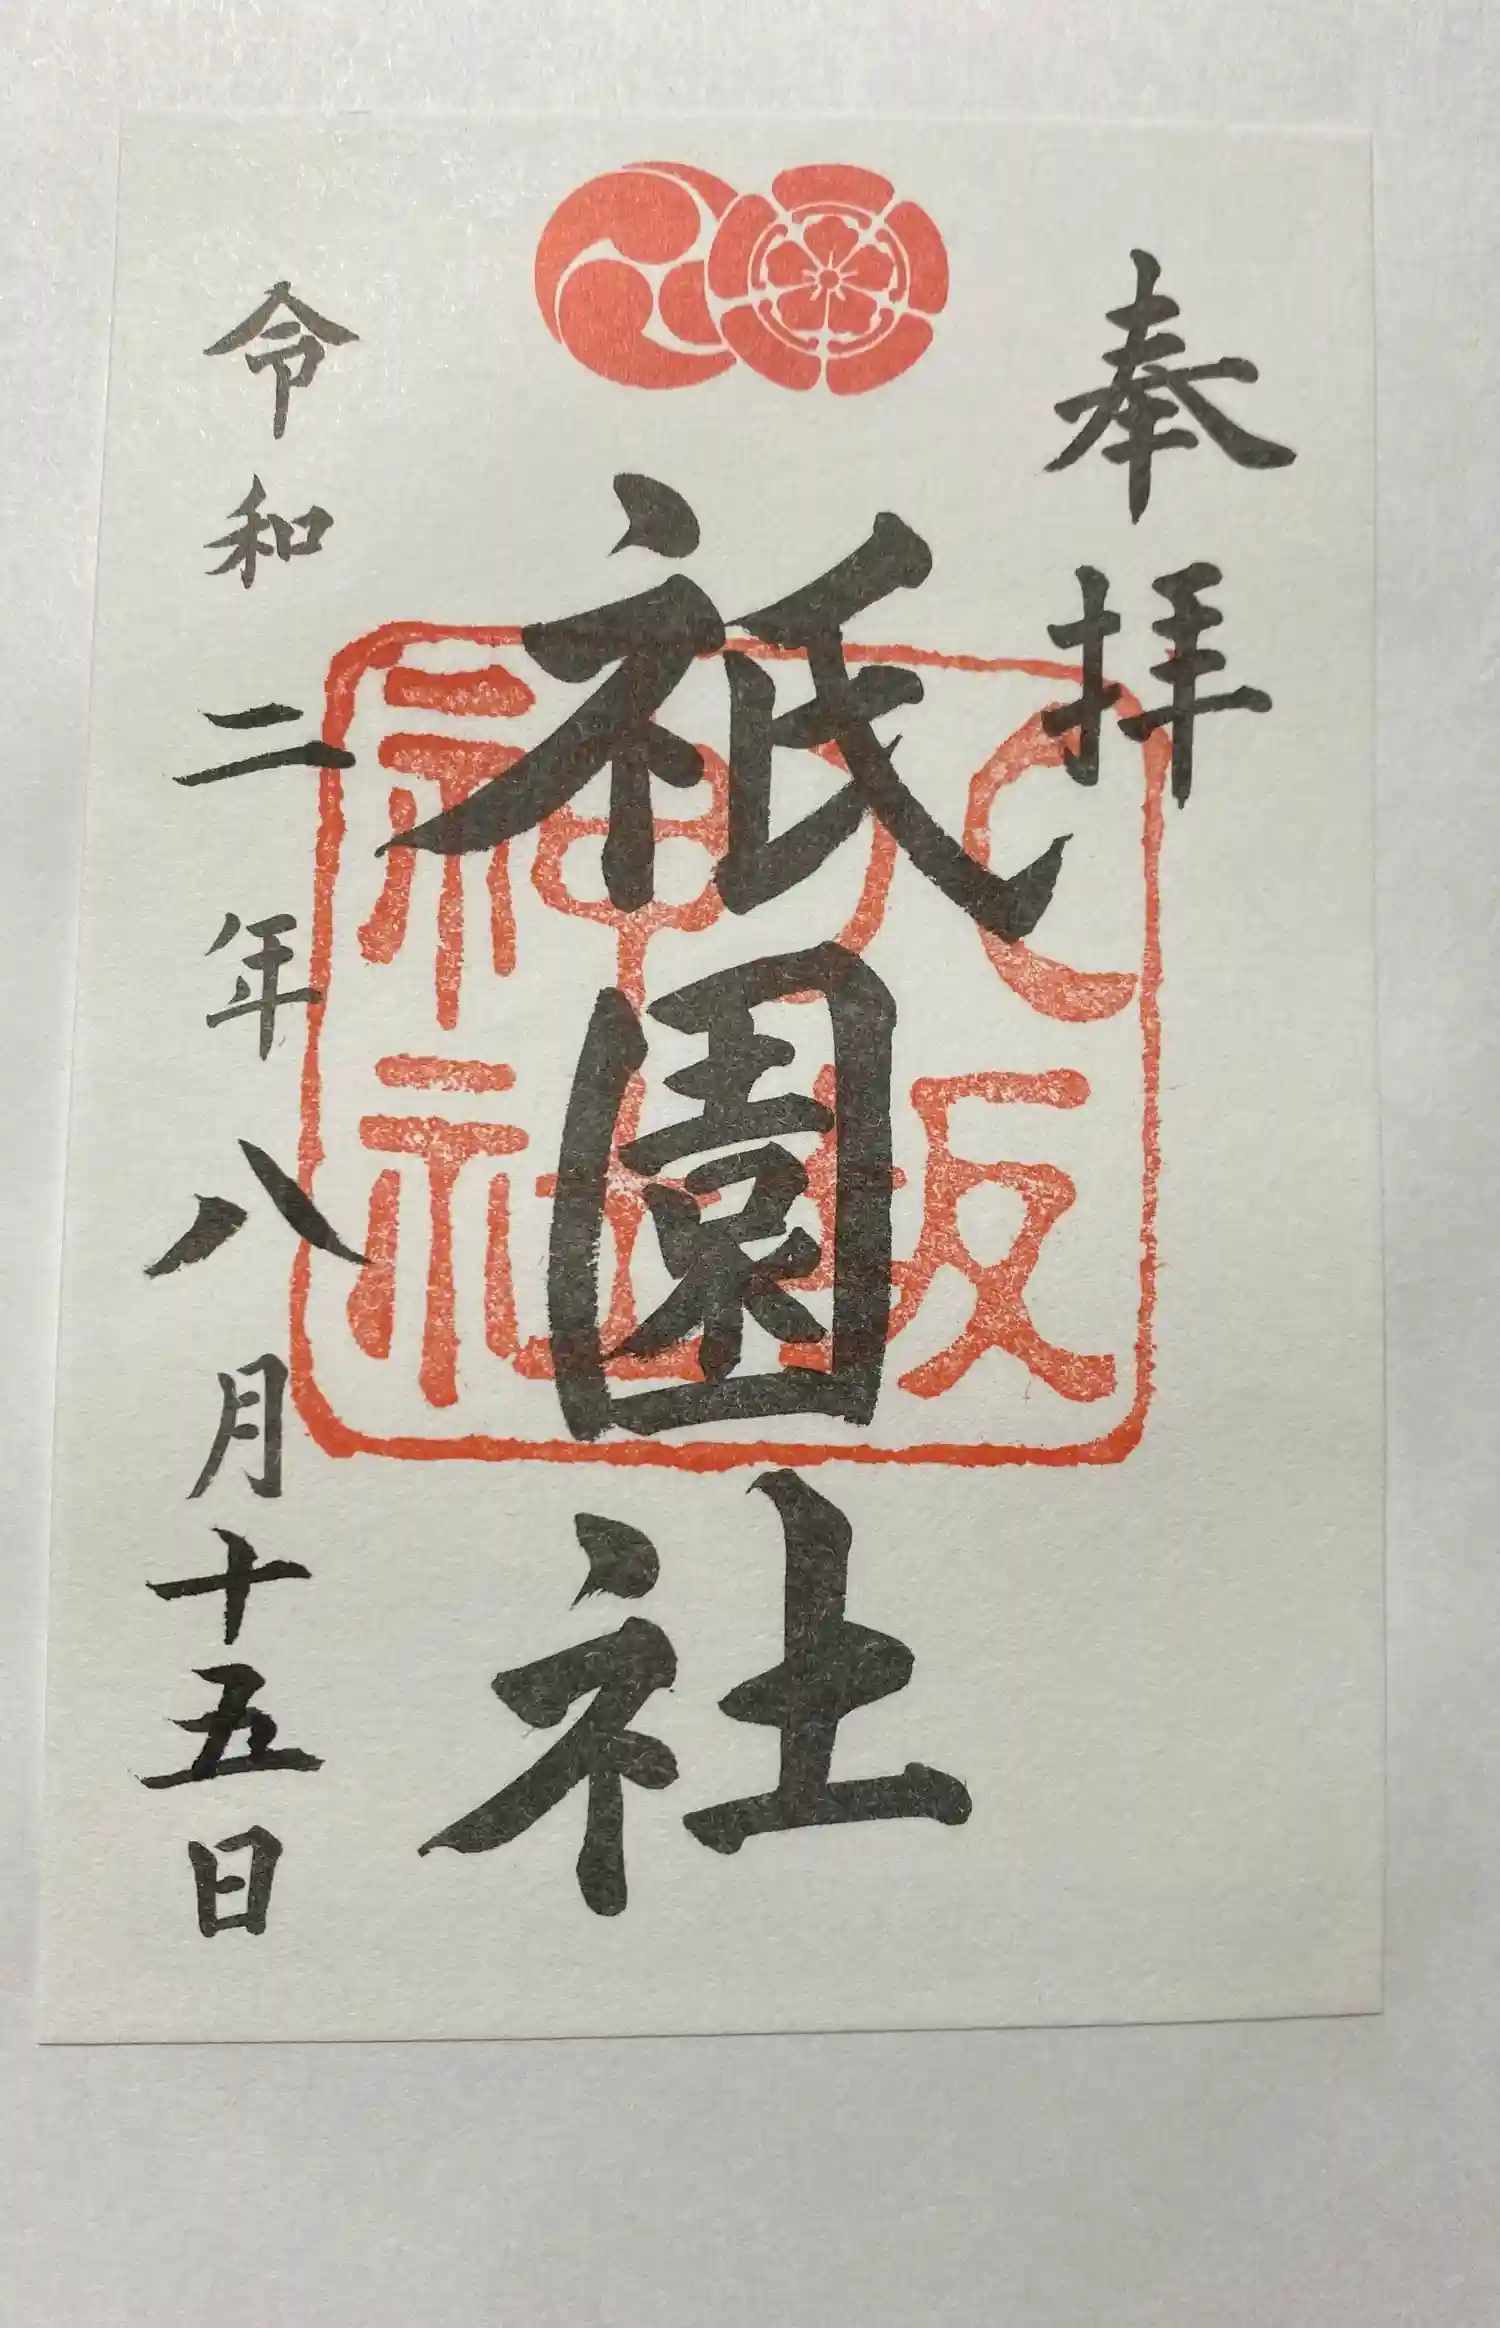 奉拝
祇園社
八坂
神社
令和二年八月十五日